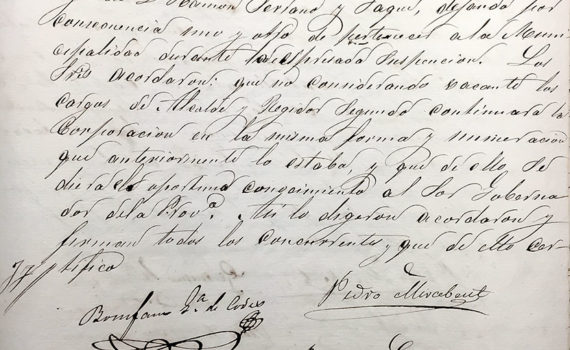 y de D. Ramon Serrano y Jaque, dejando por
consecuencia uno y otro de pertenecer a la Muni-
cipalidad durante la espresada suspencion. Los
Sres. acordaron: que no considerando vacante los
cargos de Alcalde y Regidor Segundo continuará la
Corporacion en la misma forma y numeracion
que anteriormente lo estaba y que de ello se
diera el oportuno conocimiento al Sor. Goberna-
dor de la Prov.ª Asi lo digeron acordaron y
firman todos los concurrentes, y que de ello cer-
tifico
Pedro Mirabent